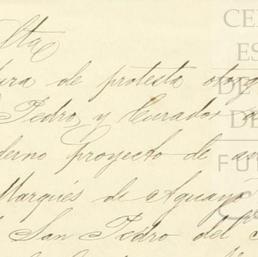 lta
ura de protesta otorg
Pedro y Curador a
derno proyecto de
Marqués de Aguayo
San Pedro del
CE
ES
DE
DE
FU